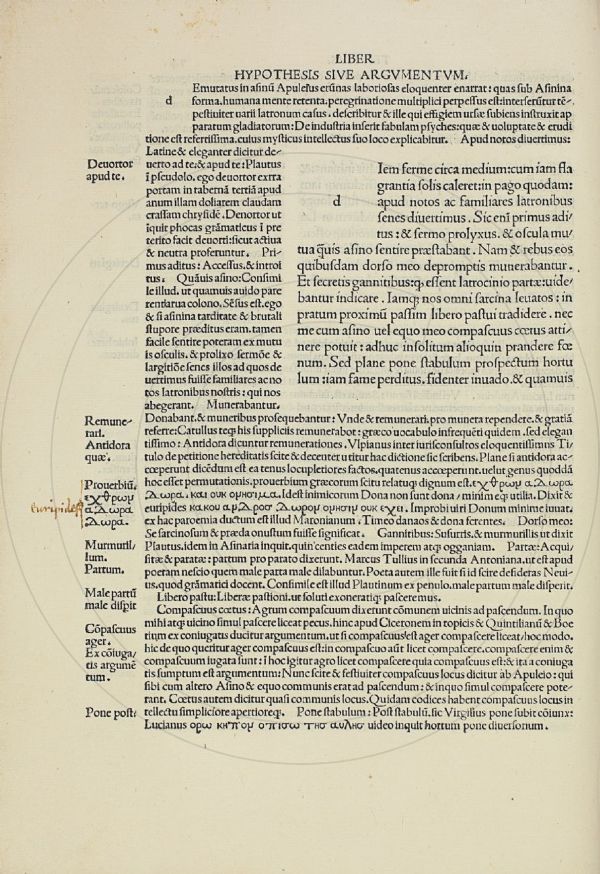 LIBER
HYPOTHESIS SIVE ARGVMENTVM.
Emutatus in asinũ Apuleius erũnas laboriosas eloquenter enarrat: quas sub Asinina
d
forma, humana mente retenta, peregrinatione multiplici perpessus est: interserũtur tẽ-
pestiuiter uarii latronum casus. describitur & ille qui effigiem ursæ subiens instruxit ap
paratum gladiatorum: De industria inserit fabulam psyches: quæ & uoluptate & erudi
tione est refertissima, cuius mysticus intellectus suo loco explicabitur. Apud notos diuertimus:
Latine & eleganter dicitur de-
Deuortor
apud te.
uerto ad te: & apud te: Plautus
ĩ pseudolo. ego deuortor extra
portam in tabernã tertiã apud
anum illam doliarem claudam
crassam chrysidẽ. Denortor ut
ĩquit phocas grãmaticus ĩ pre
terito facit deorti: sicut actiua
& neutra proferuntur. Pri-
mus aditus: Accessus, & introi
tus. Quãuis asino: Consimi
le illud. ut quamuis auido pare
rentarua colono. Sẽsus est, ego
& si asinina tarditate & brutali
stupore præditus eram, tamen
facile sentire poteram ex mutu
is osculis, & prolixo sermõe &
largitiõe senes illos ad quos de
uertimus fuisse familiares ac no
tos latronibus nostris: qui nos
abegerant. Munerabantur.
Iem ferme circa medium: cum iam fla
grantia solis caleret: in pago quodam:
d
apud notos ac familiares latronibus
senes diuertimus. Sic eni primus adi
tus: & sermo prolyxus, & oscula mu
tua quĩs asino sentire præstabant. Nam & rebus eos
quibusdam dorso meo depromptis munerabantur.
Et secretis gannitibus: q; essent latrocinio partæ: uide-
bantur indicare. Iamq; nos omni sarcina leuatos: in
pratum proximũ passim libero pastui tradidere. nec
me cum asino uel equo meo compascuus cœtus atti-
nere potuit: adhuc insolitum alioquin prandere fœ
num. Sed plane pone stabulum prospectum hortu
lum: iam fame perditus, fidenter inuado. & quamuis
Donabant. & muneribus prosequebantur: Vnde & remunerari. pro munera rependere. & gratiã
Remune-
rari.
Antidora
quæ.
referre: Catullus teq; his suppliciis remunerabor: græco uocabulo infrequẽti quidem. sed elegan
tissimo: Antidora dicuntur remunerationes. Vlpianus inter iurisconsultos eloquentissimus Ti-
tulo de petitione hereditatis scite & decenter utitur hac dictiõe sic scribens. Plane si antidora ac-
ceperunt dicẽdum est ea tenus locupletiores factos. quatenus acceperunt. uelut genus quoddã
Prouerbiũ.
εχθρωμ
αδωρα
Δωρα.
euripides
hoc esset permutationis. prouerbium græcorum scitu relatuq; dignum est. εχθρωμ αδωρα
Δωρα. και ουκ ομησιμα. Id est inimicorum Dona non sunt dona / minimeq; utilia. Dixit &
euripides κακου αμδροσ Δωρομ ομησιμ ουκ εχει. Improbi uiri Donum minime iuuat.
ex hac paroemia ductum est illud Maronianum. Timeo danaos & dona ferentes. Dorso meo:
Se sarcinosum & præda onustum fuisse significat. Gannitibus: Susurris, & murmurillis ut dixit
Murmuril-
lum.
Partum.
Plautus. idem in Asinaria inquit. quin centies eadem imperem atq; ogganiam. Partæ: Acqui-
sitæ & paratæ: partum pro parato dixerunt. Marcus Tullius in secunda Antoniana. ut est apud
poetam nescio quem male parta male dilabuntur. Poeta autem ille fuit si id scire desideras Neui-
us. quod grãmatici docent. Consimile est illud Plautinum ex penulo. male partum male disperit.
Male partũ
male dispit
Libero pastu: Liberæ pastioni. ut soluti exonoratiq; pasceremus.
Compascuus cœtus: Agrum compascuum dixerunt cõmunem uicinis ad pascendum. In quo
Cõpascuus
ager.
Ex cõiuga-
tis argumẽ
tum.
mihi atq; uicino simul pascere liceat pecus. hinc apud Ciceronem in topicis & Quintilianũ & Boe
tium ex coniugatis ducitur argumentum. ut si compascuus est ager compascere liceat / hoc modo.
hic de quo queritur ager compascuus est: in compascuo aũt licet compascere. compascere enim &
compascuum iugata sunt: I hoc igitur agro licet compascere quia compascuus est: & ita a coniuga
tis sumptum est argumentum: Nunc scite & festiuiter compascuus locus dicitur ab Apuleio: qui
sibi cum altero Asino & equo communis erat ad pascendum: & in quo simul compascere pote-
rant. Cœtus autem dicitur quasi communis locus. Quidam codices habent compascuus locus in
Pone post:
tellectu simpliciore apertioreq;. Pone stabulum: Post stabulũ. sic Virgilius pone subit cõiunx:
Lucianus ορω κηπομ οπισω τησ αυλησ uideo inquit hortum pone diuersorium.